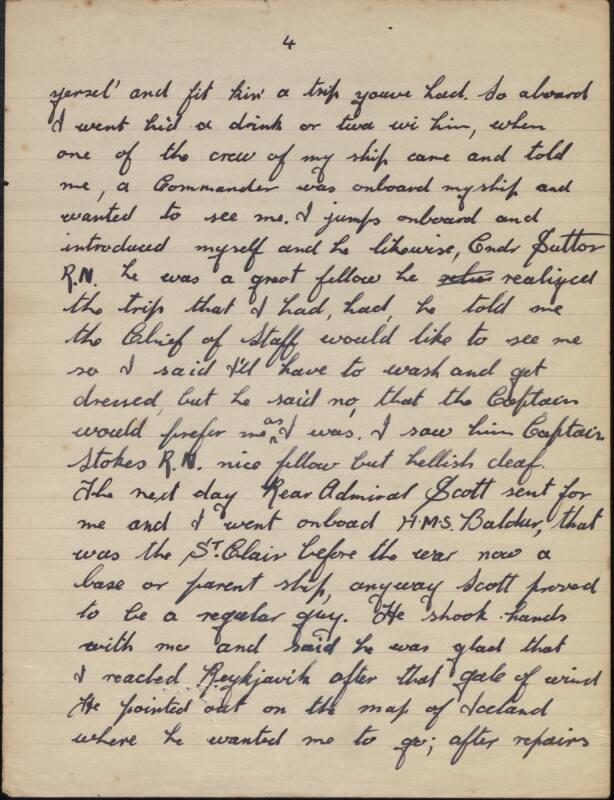 4
yersel' and fit kin' a trip youve had. So aboard
I went hi'd a drink or twa wi him, when
one of the crew of my ship came and told
me, a Commander was onboard my ship and
wanted to see me. I jumps onboard and
introduced myself and he likewise, Cmdr Sutton
R.N. he was a great fellow he realized
the trip that I had, had, he told me
the Chief of Staff would like to see me
so I said I'd have to wash and get
dressed, but he said no, that the Captain
would prefer me as I was. I saw him Captain
Stokes R.N. nice fellow but hellish deaf.
The next day Rear Admiral Scott sent for
me and I went onboad H.M.S. Baldur, that
was the St. Clair before the war now a
base or parent ship, anyway Scott proved
to be a regular guy. He shook hands
with me and said he was glad that
I reached Reykjavik after that gale of wind
He pointed out on the map of Iceland
where he wanted me to go; after repairs